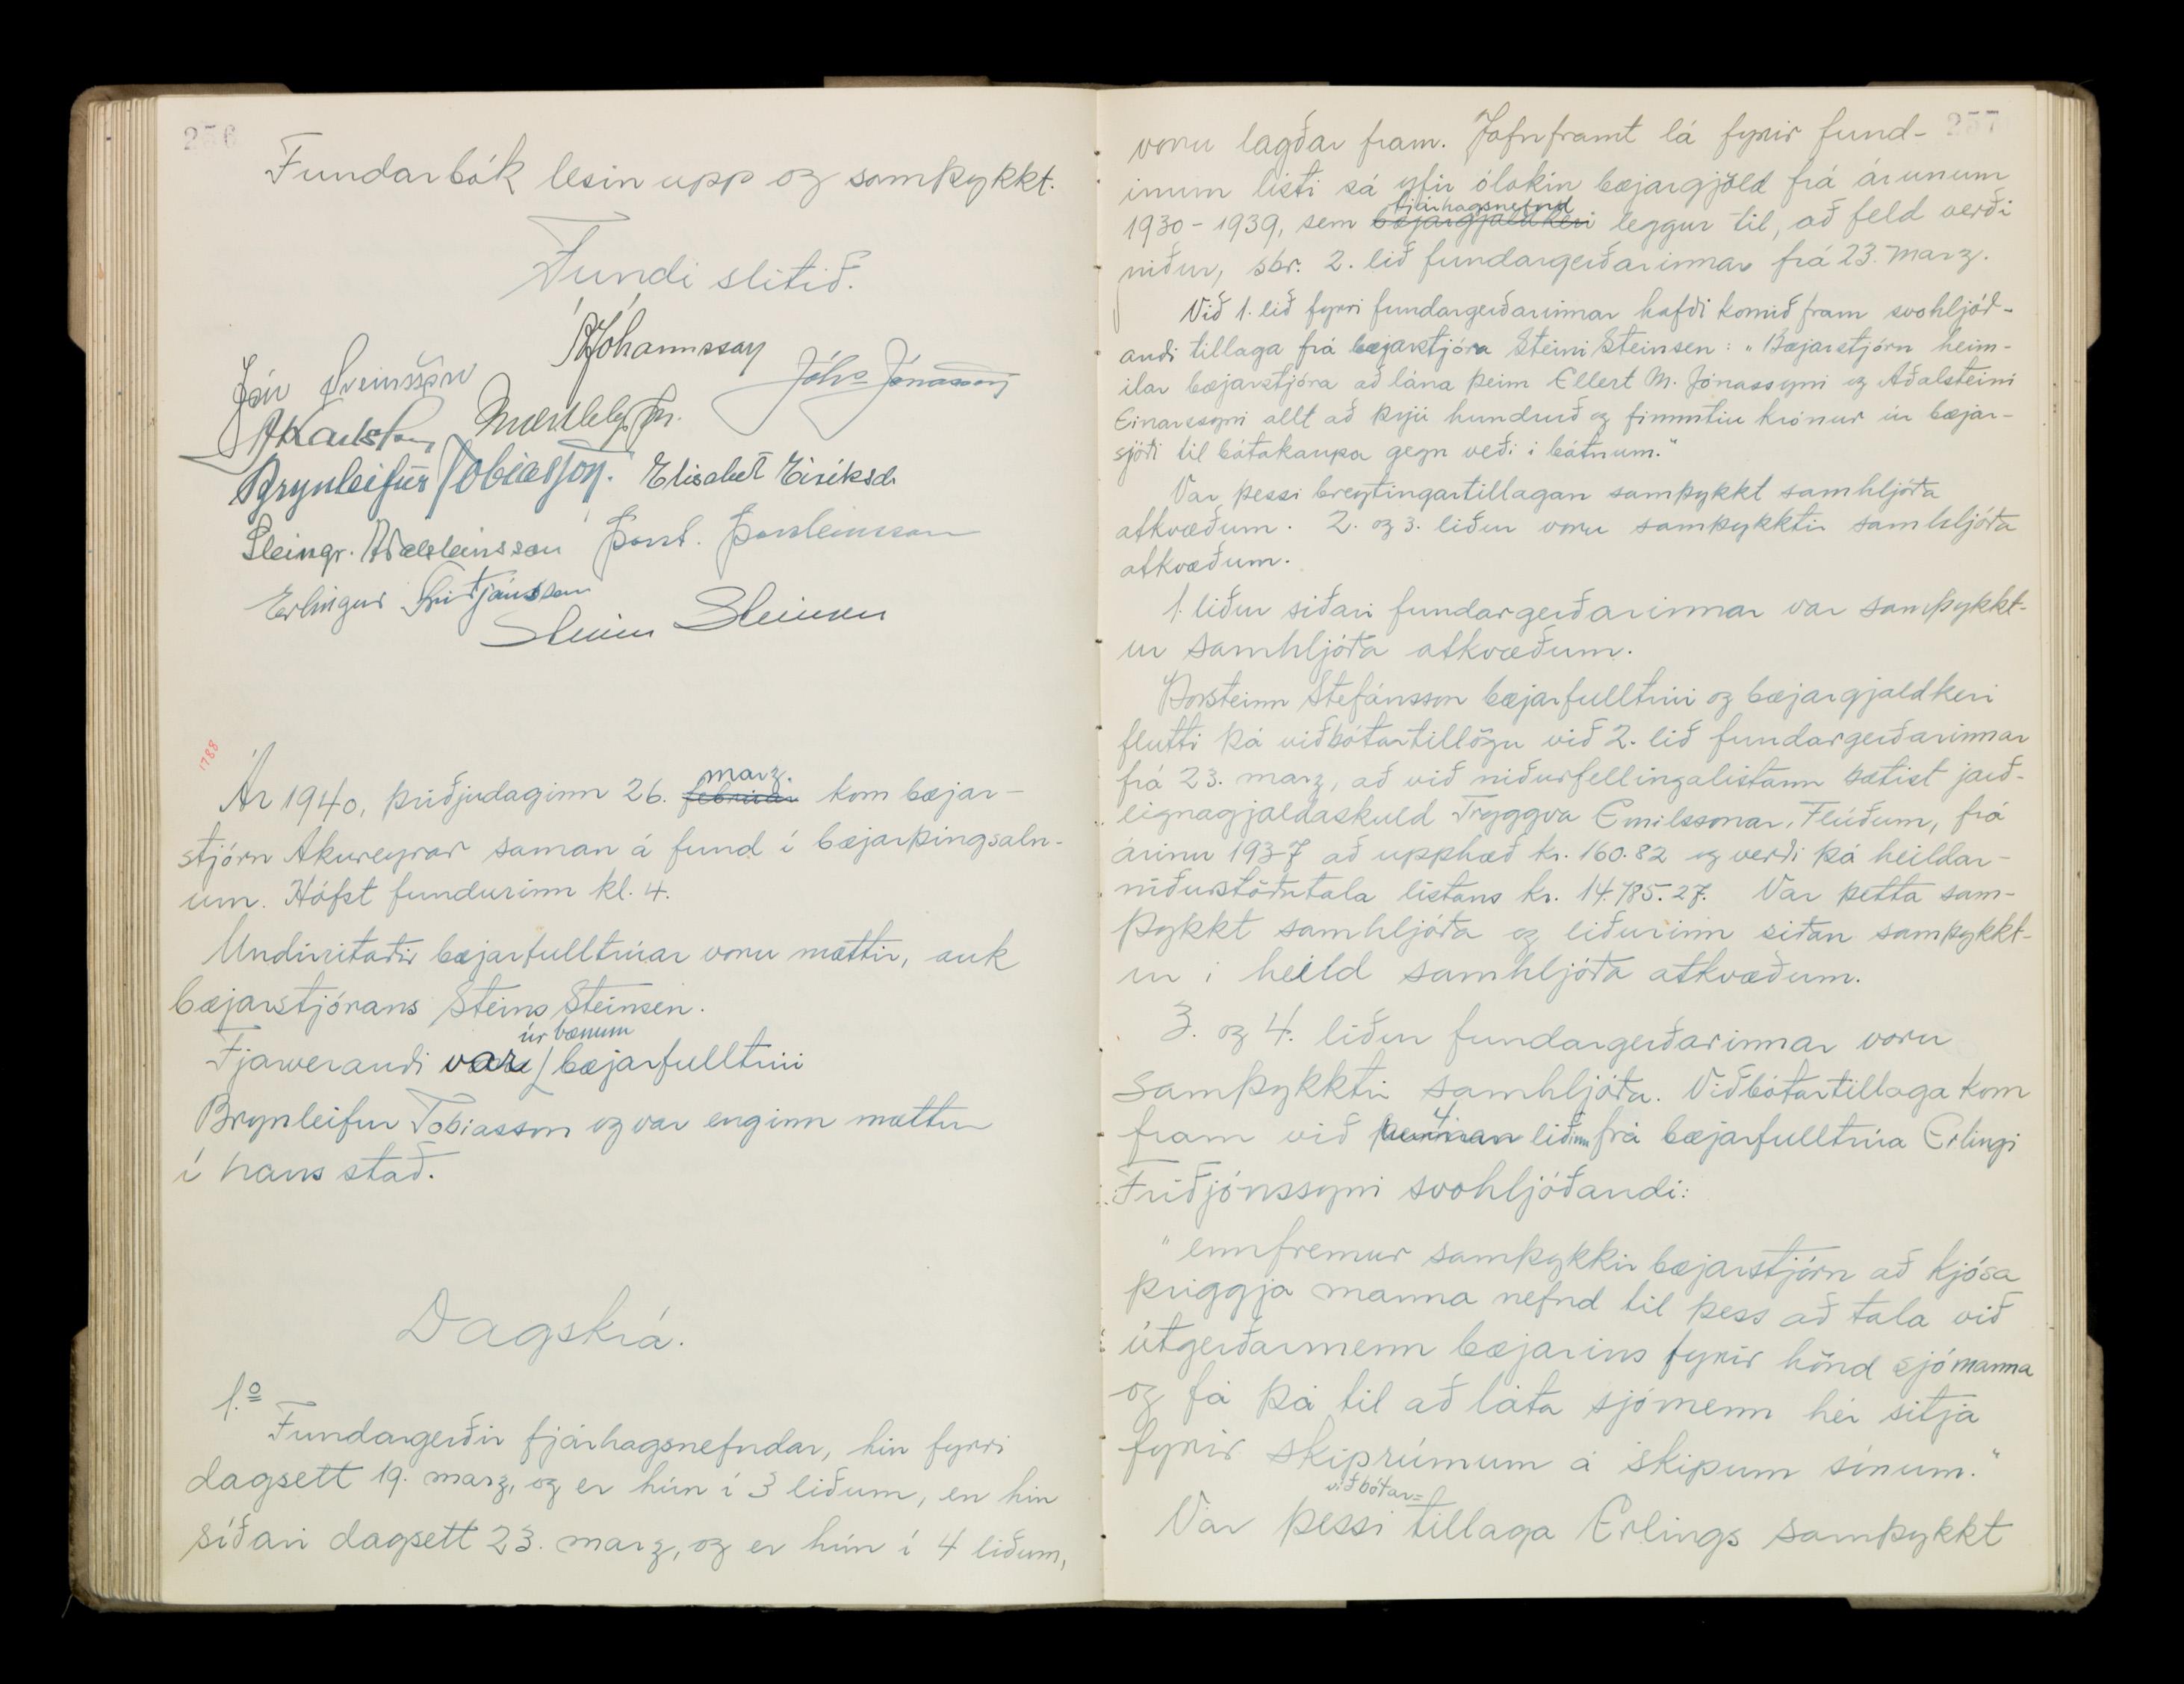 256
Fundarbók lesin upp og samþykkt.
Fundi slitið.
Jóhannsson
Jón Sveinsson
Jóhs Jónasson
A Karlsson
Brynleifur Tobiasson. Elisabet Eiriksd.
Steingr. Aðalsteinsson Þorst. Þorsteinsson
Erlingur Friðjónsson
Steinn Steinsen
1788
Ár 1940, þriðjudaginn 26. febrúar marz. kom bæjar-
stjórn Akureyrar saman á fund í bæjarþingsaln-
um. Hófst fundurinn kl. 4.
Undirritaðir bæjarfulltrúar voru mættir, auk
bæjarstjórans Steins Steinsen.
Fjarverandi var úr bænum bæjarfulltrúi
Brynleifur Tobiasson og var enginn mættur
í hans stað.
Dagskrá.
1.o
Fundargerðir fjárhagsnefndar, hin fyrri
dagsett 19. marz, og er hún í 3 liðum, en hin
síðari dagsett 23. marz, og er hún í 4 liðum,
257
voru lagðar fram. Jafnframt lá fyrir fund-
inum listi sá yfir ólokin bæjargjöld frá árunum
1930-1939, sem bæjargjaldkeri fjárhagsnefnd leggur til, að feld verði
niður, sbr. 2. lið fundargerðarinnar frá 23. marz.
Við 1. lið fyrri fundargerðarinnar hafði komið fram svohljóð-
andi tillaga frá bæjarstjóra Steini Steinsen: „Bæjarstjórn heim-
ilar bæjarstjóra að lána þeim Ellert M. Jónassyni og Aðalsteini
Einarssyni allt að þrjú hundruð og fimmtíu krónur úr bæjar-
sjóði til bátakaupa gegn veði í bátnum."
Var þessi breytingartillagan samþykkt samhljóða
atkvæðum. 2. og 3. liður voru samþykktir samhljóða
atkvæðum.
1. liður síðari fundargerðarinnar var samþykkt-
ur samhljóða atkvæðum.
Þorsteinn Stefánsson bæjarfulltrúi og bæjargjaldkeri
flutti þá viðbótartillögu við 2. lið fundargerðarinnar
frá 23. marz, að við niðurfellingalistann bætist jarð-
eignagjaldaskuld Tryggva Emilssonar, Flúðum, frá
árinu 1937 að upphæð kr. 160.82 og verði þá heildar-
niðurstöðutala listans kr. 14.785.27. Var þetta sam-
þykkt samhljóða og liðurinn síðan samþykkt-
ur í heild samhljóða atkvæðum.
3. og 4. liður fundargerðarinnar voru
samþykktir samhljóða. Viðbótartillaga kom
fram við 4. liðinn frá bæjarfulltrúa Erlingi
Friðjónssyni svohljóðandi:
„ennfremur samþykkir bæjarstjórn að kjósa
þriggja manna nefnd til þess að tala við
útgerðarmenn bæjarins fyrir hönd sjómanna
og fá þá til að láta sjómenn hér sitja
fyrir skiprúmum á skipum sínum."
Var þessi viðbótar= tillaga Erlings samþykkt